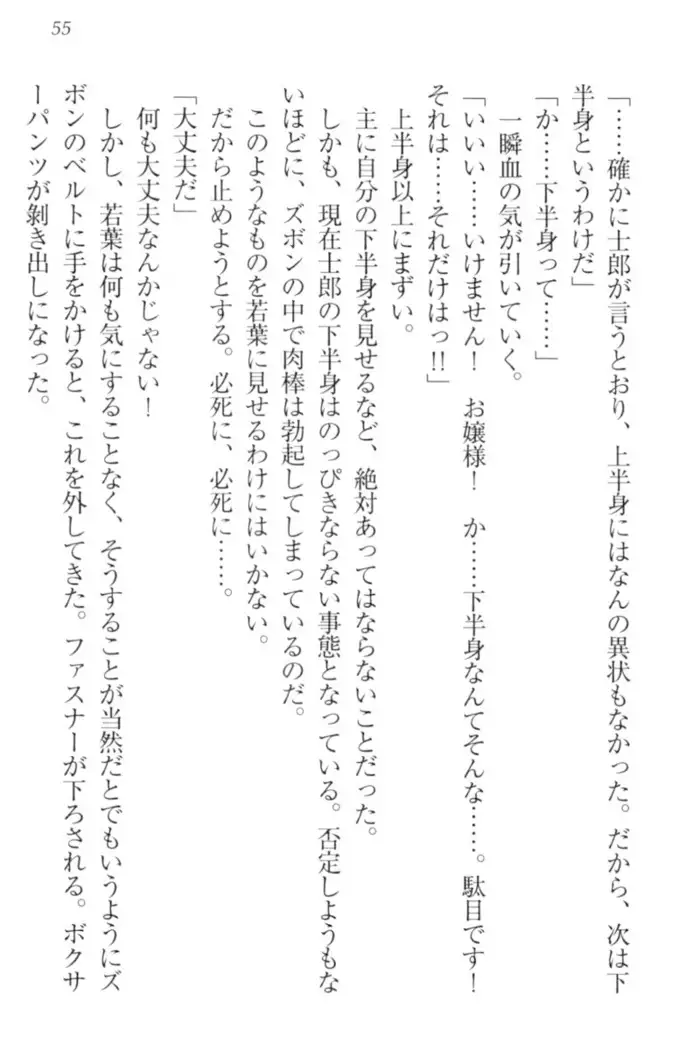 55
「……確かに士郎が言うとおり、上半身にはなんの異状もなかった。だから、次は下
半身というわけだ」
「か……下半身って……」
一瞬血の気が引いていく。
「いいい……いけません！　お嬢様！　か……下半身なんてそんな……。駄目です！
それは……それだけはっ!!」
上半身以上にまずい。
主に自分の下半身を見せるなど、絶対あってはならないことだった。
しかも、現在士郎の下半身はのっぴきならない事態となっている。否定しようもな
いほどに、ズボンの中で肉棒は勃起してしまっているのだ。
このようなものを若葉に見せるわけにはいかない。
だから止めようとする。必死に、必死に……。
「大丈夫だ」
何も大丈夫なんかじゃない！
しかし、若葉は何も気にすることなく、そうすることが当然だとでもいうようにズ
ボンのベルトに手をかけると、これを外してきた。ファスナーが下ろされる。ボクサ
ーパンツが剝き出しになった。